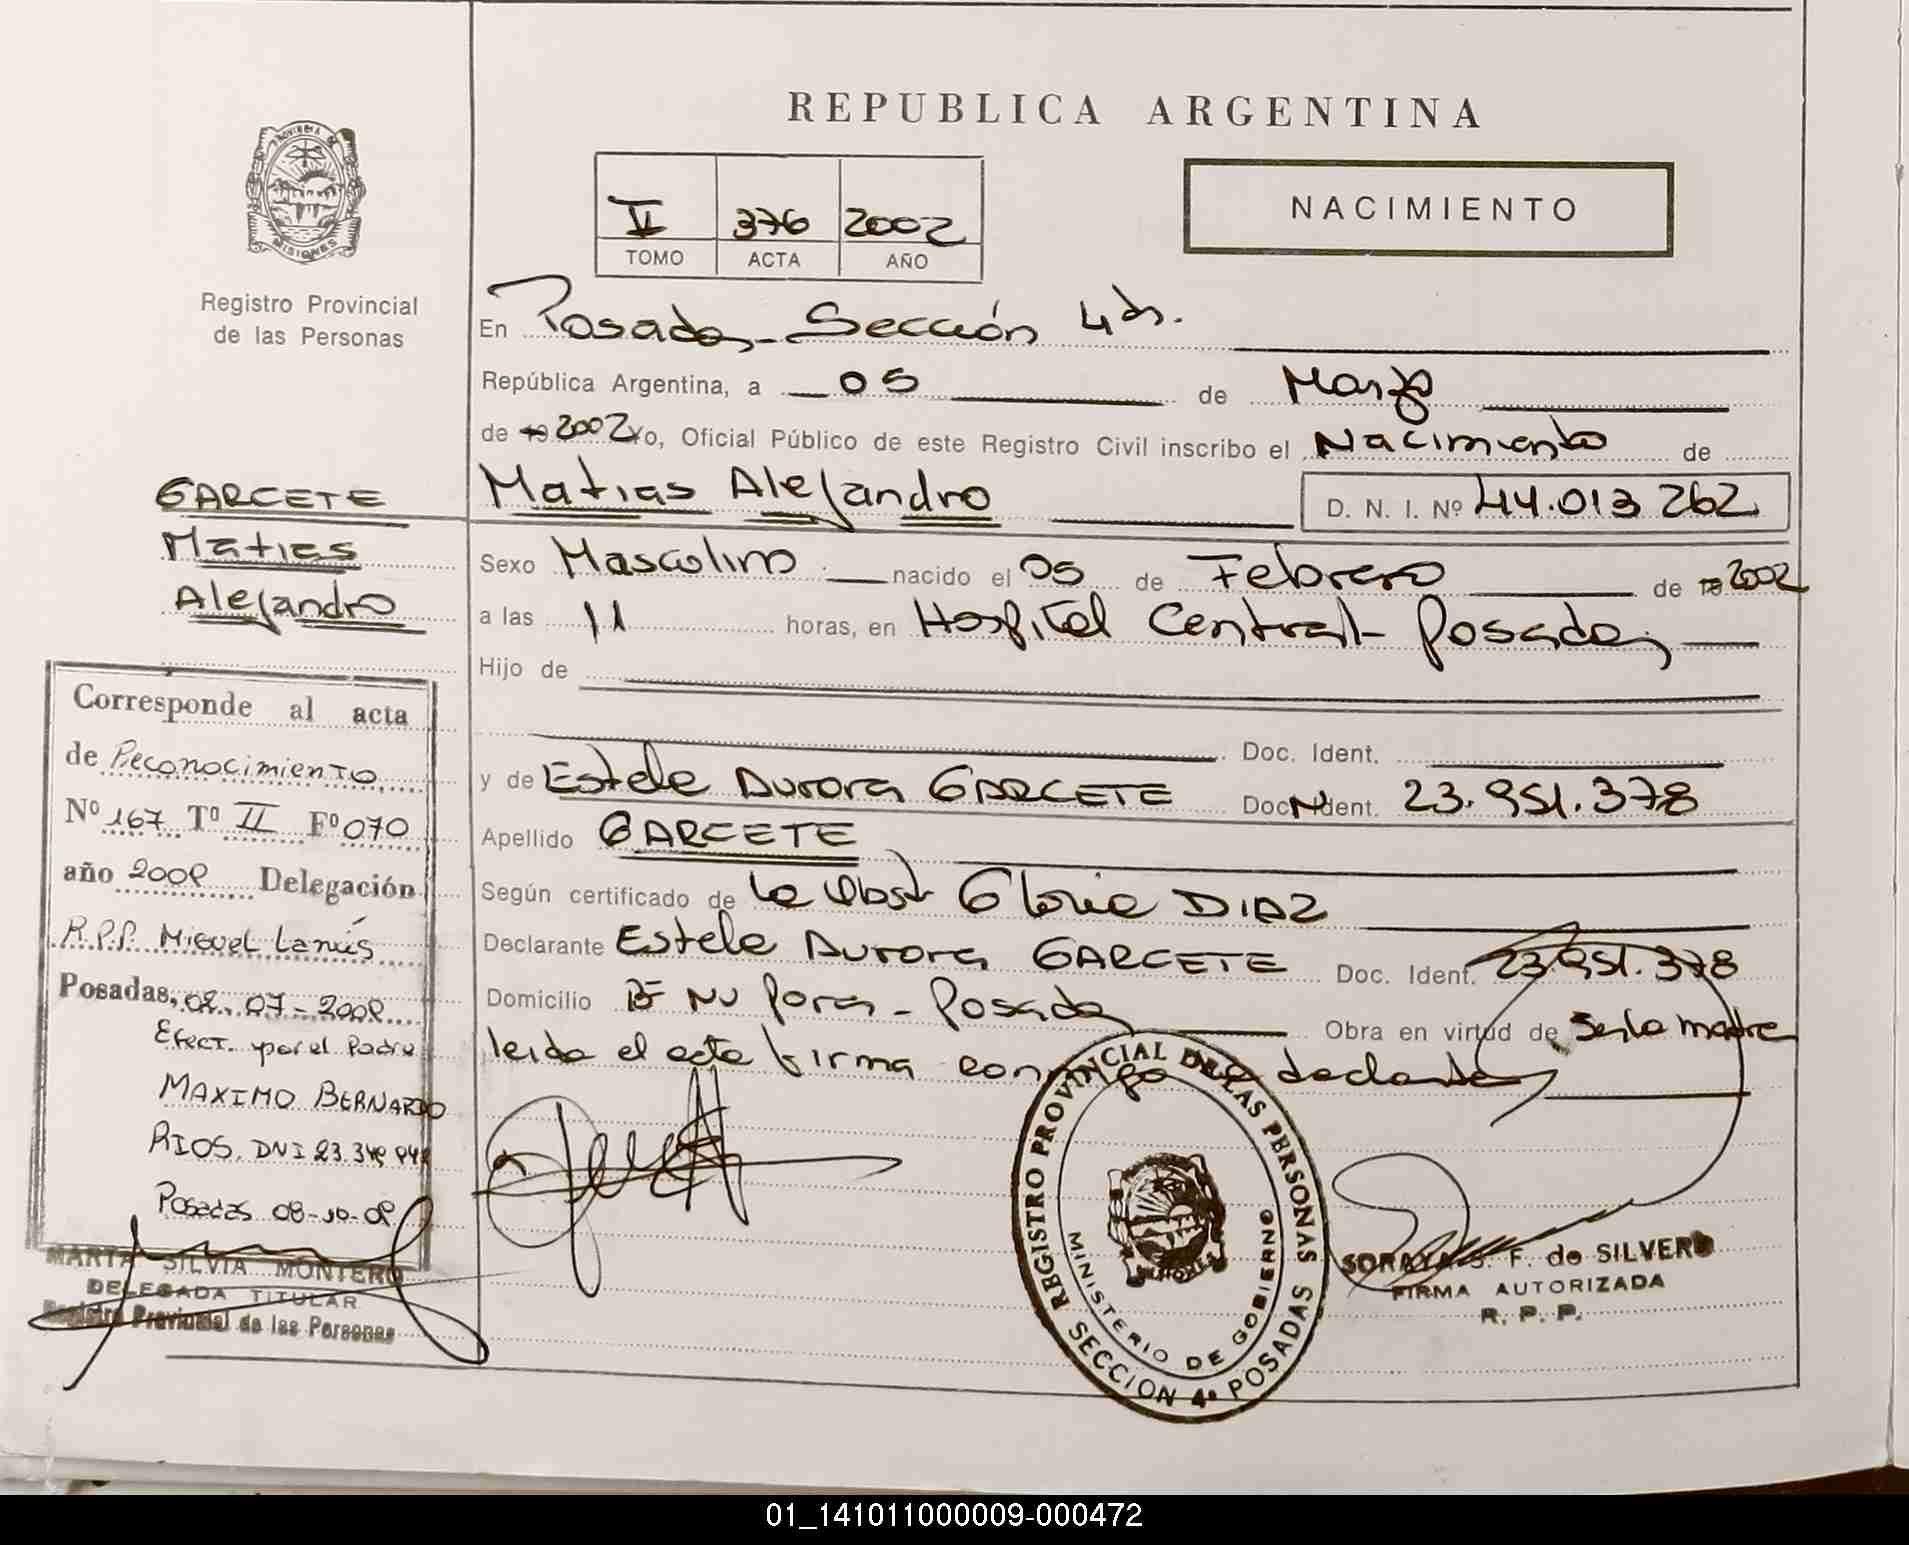 REPUBLICA ARGENTINA
PROVINCIA DE
MISIONES
Registro Provincial
de las Personas
II 376 2002
TOMO ACTA AÑO
NACIMIENTO
En Posadas - Sección 4ta.
República Argentina, a 05 de Marzo
de 19 2002 Yo, Oficial Público de este Registro Civil inscribo el Nacimiento de
Matias Alejandro D. N. I. Nº 44.013 262
Sexo Masculino nacido el 05 de Febrero de 19 2002
a las 11 horas, en Hospital Central - Posadas
Hijo de
Doc. Ident.
y de Estela Aurora GARCETE Doc. Ident. 23.951.378
Apellido GARCETE
Según certificado de la Obst Gloria DIAZ
Declarante Estela Aurora GARCETE Doc. Ident. 23.951.378
Domicilio Bº Ñu Pora - Posadas Obra en virtud de Ser la madre
leida el acta firma conmigo declarante
GARCETE
Matias
Alejandro
Corresponde al acta
de Reconocimiento
Nº 167 Tº II Fº 070
año 2008 Delegación
R.P.P. Miguel Lanús
Posadas, 02-07-2008
Efect. por el Padre
MAXIMO BERNARDO
RIOS. DNI 23.348
Posadas 08-10-08
MARTA SILVIA MONTERO
DELEGADA TITULAR
Registro Provincial de las Personas
REGISTRO PROVINCIAL DE LAS PERSONAS
MINISTERIO DE GOBIERNO
MISIONES
SECCION 4ª POSADAS
SORAYA S. F. de SILVERO
FIRMA AUTORIZADA
R. P. P.
01_141011000009-000472